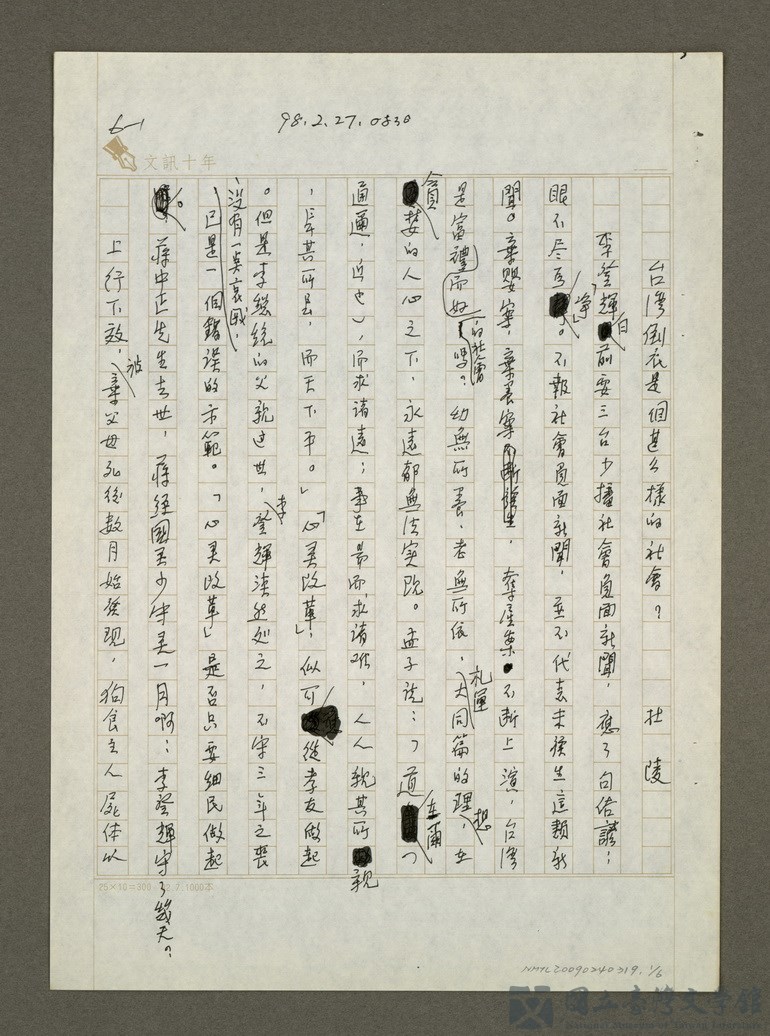 98.2.27.0830
6-1
文訊十年
台灣倒底是個甚么樣的社會？ 杜陵
李登輝曰前要三台少播社會負面新聞，應了句俗諺：
眼不見為淨。不報社會負面新聞，並不代表未發生這類新
聞。棄嬰案，棄養案，奪產案不斷上演，台灣
是富而好禮的社會嗎？幼無所養、老無所依，禮運大同篇的理想，在
貪婪的人心之下，永遠都無法實現。孟子說：「道在爾（
通邇，近也），而求諸遠；事在易而求諸难，人人親其所親
，長其所長，而天下平。」「心灵改革」，似可從孝友做起
。但是李總統的父親过世，李登輝淡然処之，不守三年之喪
，沒有一点哀戚，已是一個錯誤的示範。「心灵改革」是否只要細民做起
。蔣中正先生去世，蔣經國至少守灵一月啊；李登輝守了幾天？
上行下效，被棄父母死後數月始發現，狗食主人屍体以
25×10=300
NMTL20090240319.1/6
國立臺灣文學館
National Museum of Taiwan Literature